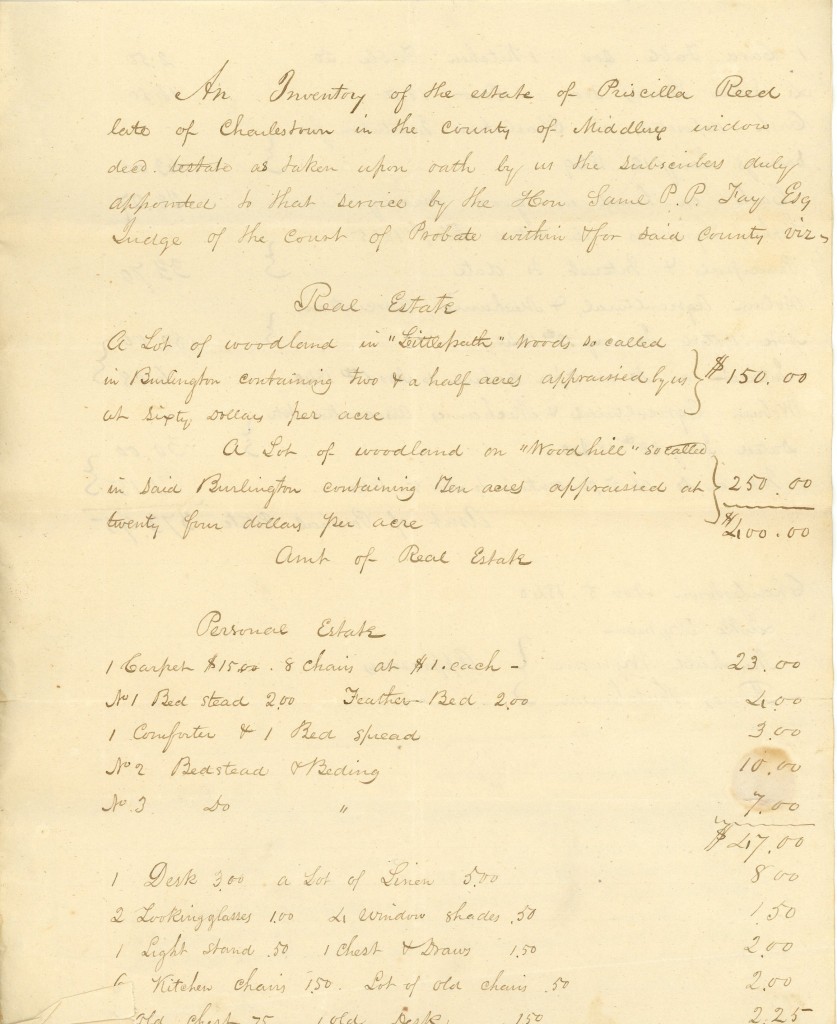 An Inventory of the estate of Priscilla Reed
late of Charlestown in the county of Middlesex widow
decd. testate as taken upon oath by us the subscribers duly
appointed to that service by the Hon Saml P. P. Fay Esq
Judge of the Court of Probate within & for said County viz
Real Estate
A Lot of woodland in "Littlepath" Woods so called
in Burlington containing two & a half acres appraisied by us $150.00
at sixty Dollars per acre
A Lot of woodland on "Woodhill" so called
in said Burlington containing Ten acres appraisied at 250.00
twenty four dollars per acre $400.00
Amt of Real Estate
Personal Estate
1 Carpet $15.00. 8 chairs at $1. each - 23.00
No 1 Bed stead 2.00 Feather Bed 2.00 4.00
1 Comforter & 1 Bed spread 3.00
No 2 Bedstead & Beding 10.00
No. 3 Do " 7.00
$47.00
1 Desk 3.00 a Lot of Linen 5.00 8.00
2 Lookingglasses 1.00 4 Window shades .50 1.50
1 Light stand .50 1 Chest & Draws 1.50 2.00
6 Kitchen chairs 1.50. Lot of old chairs .50 2.00
old chest .75 1 old Desk 1.50 2.25